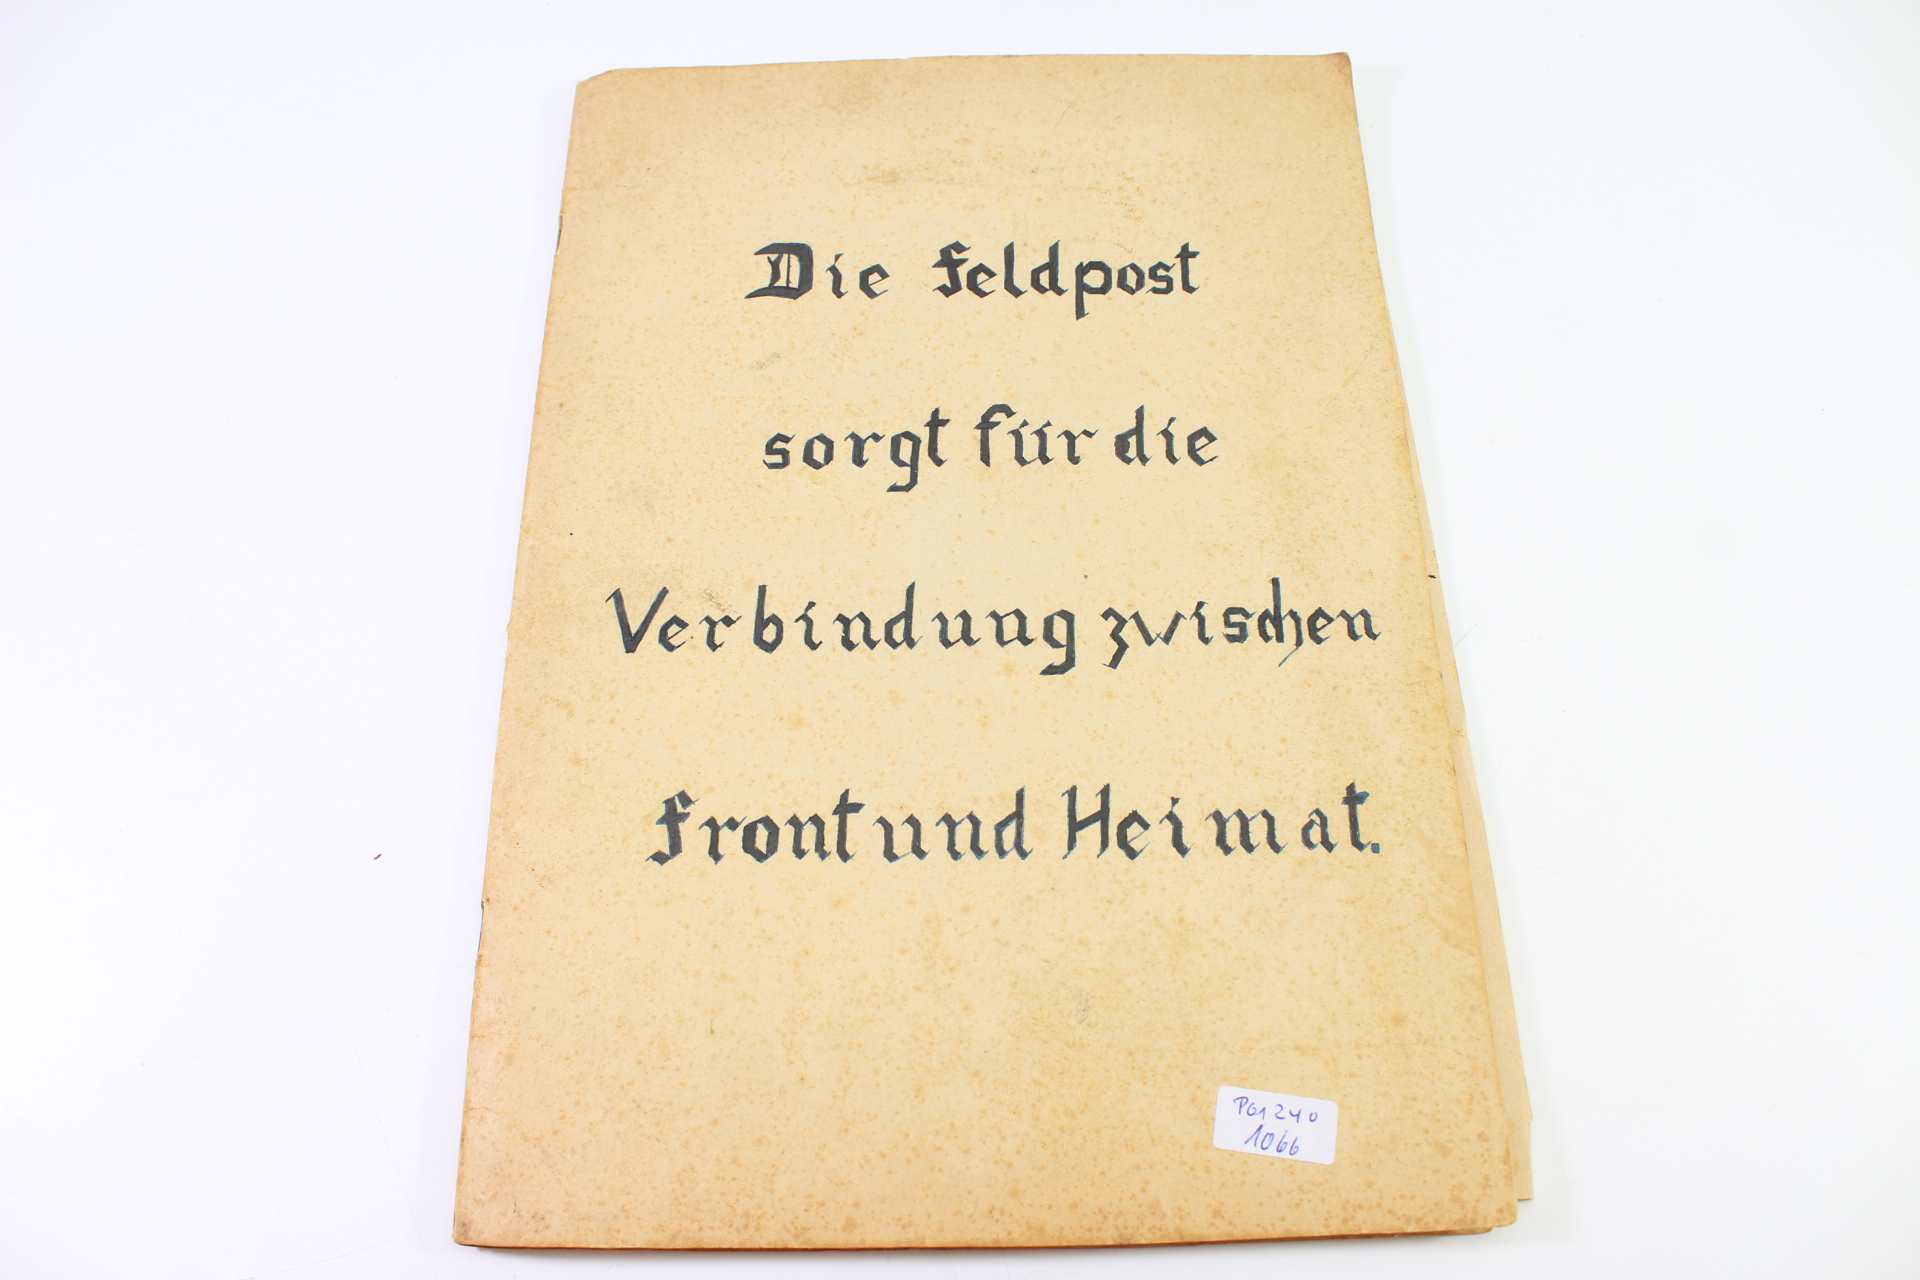 Die Feldpost
sorgt für die
Verbindung zwischen
Front und Heimat.
1066